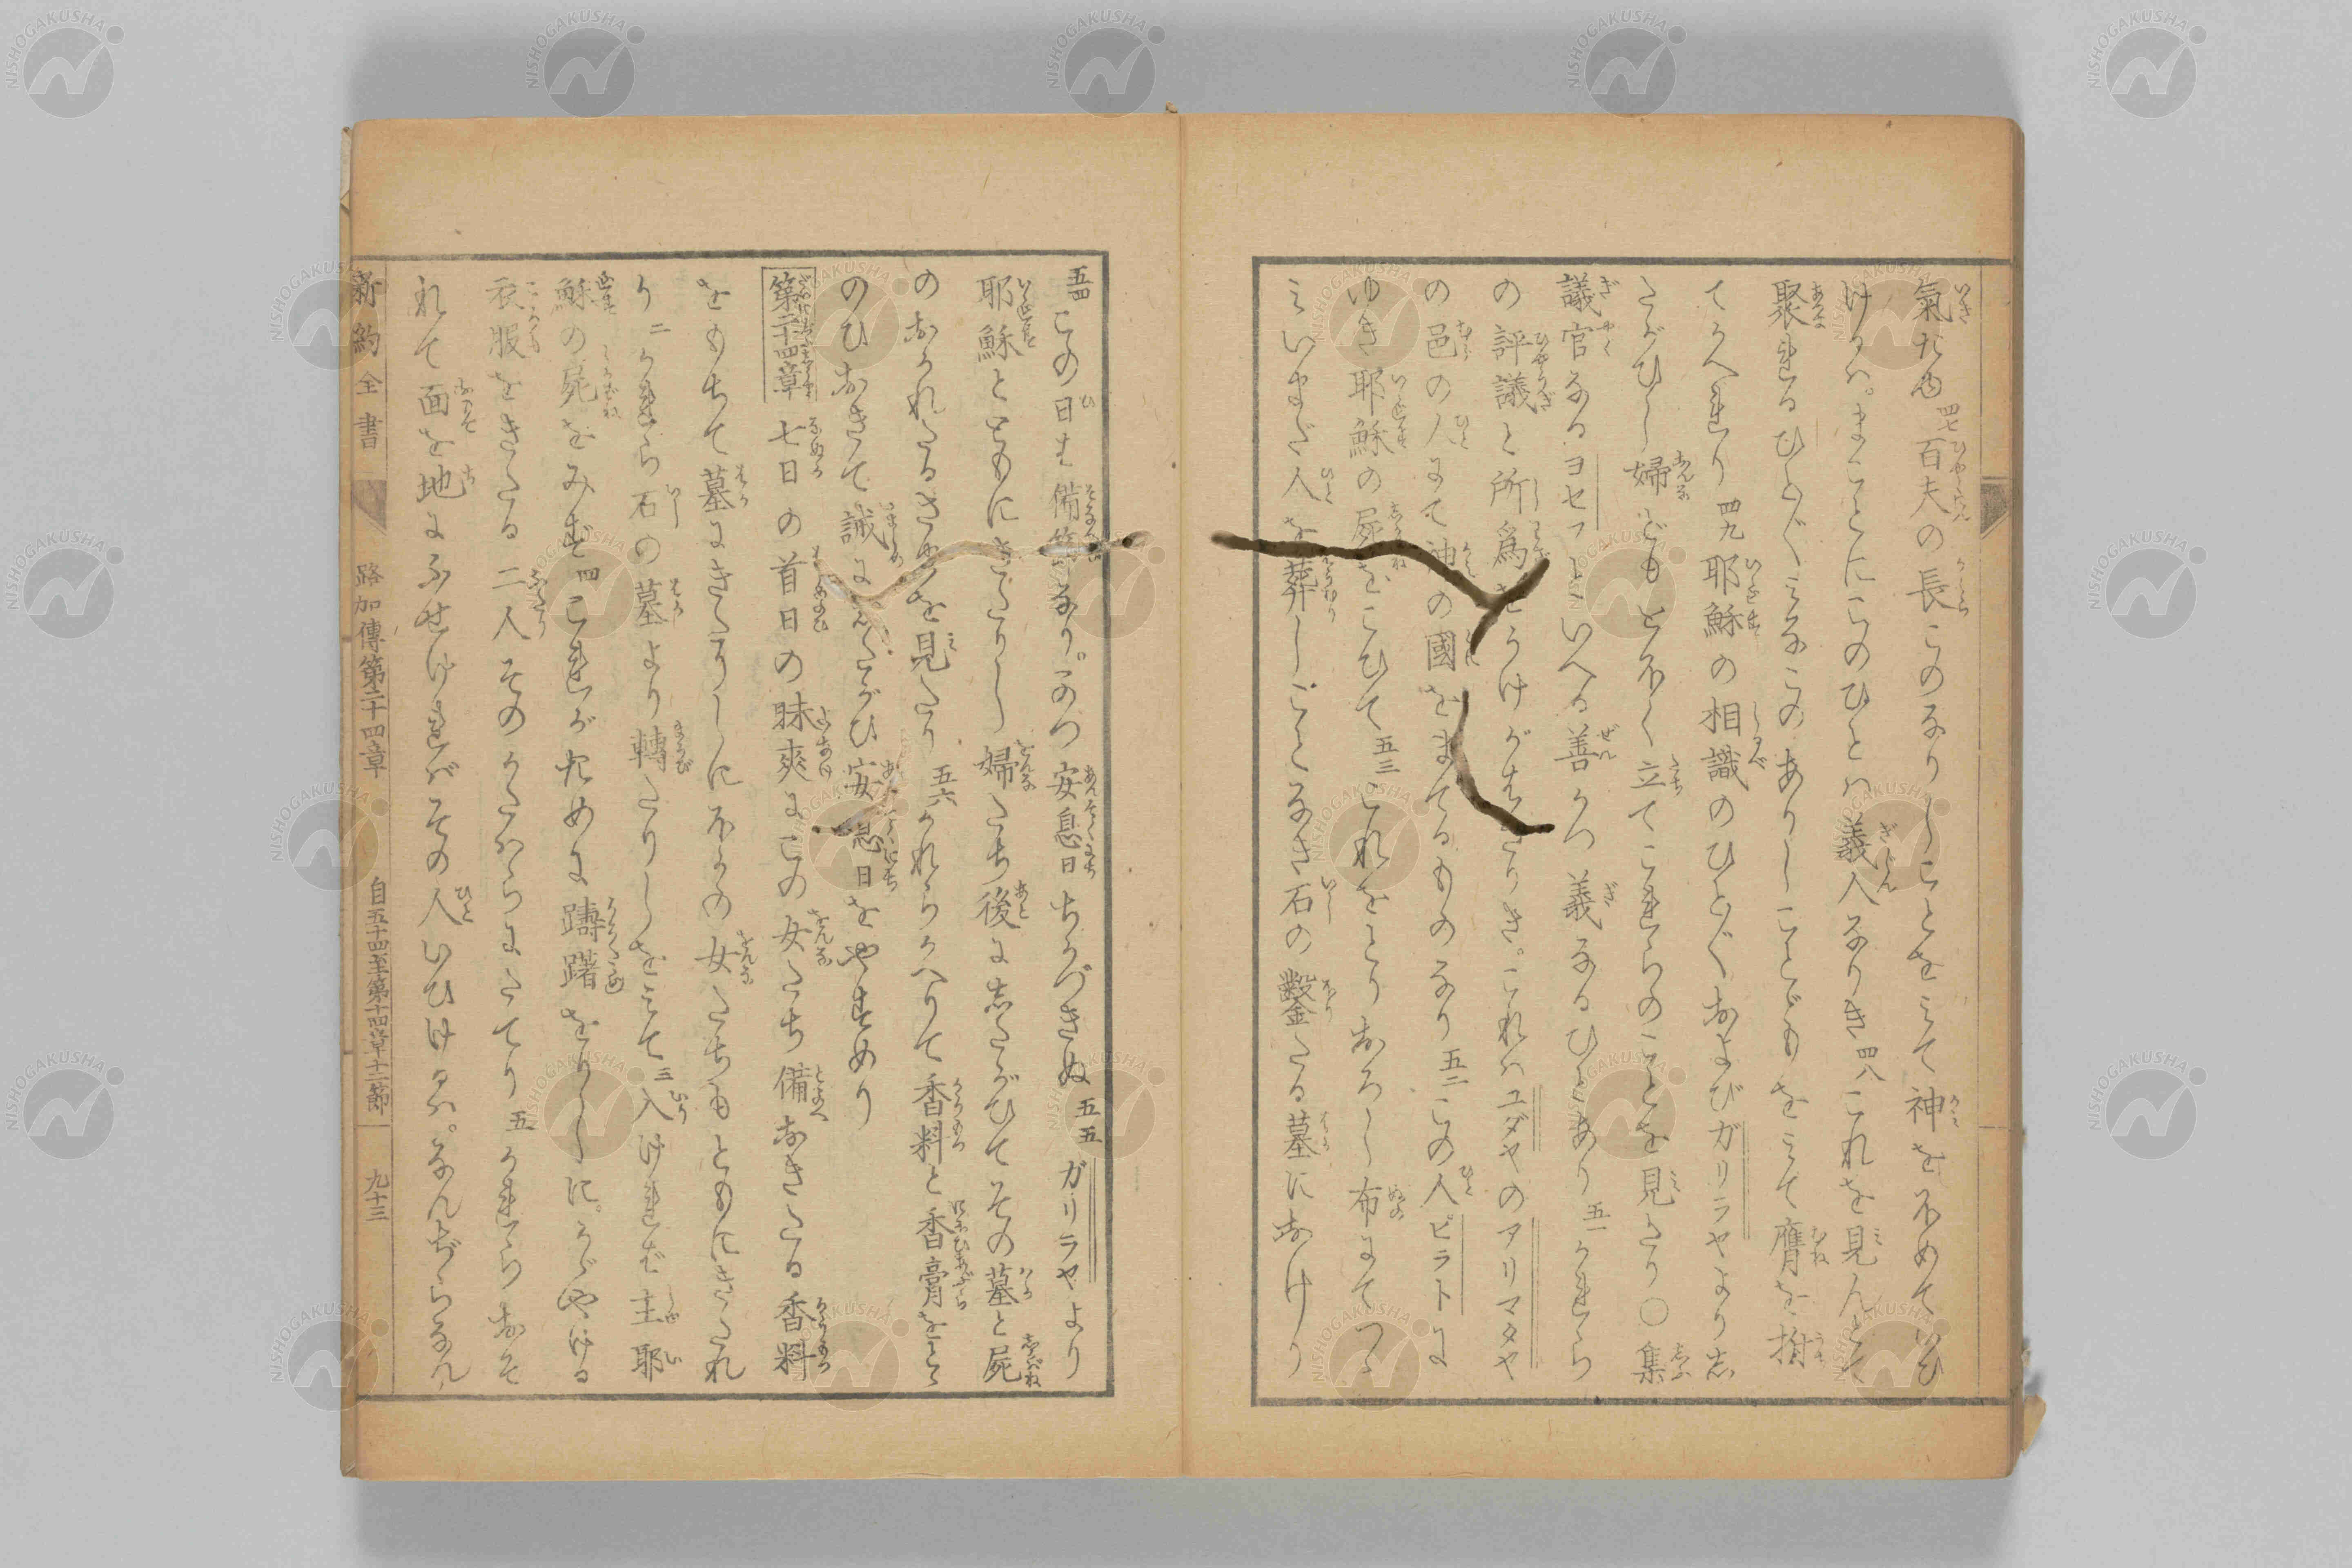 氣たゆ 四七 百夫の長このなりしことをみて神をほめていひ
けるハ。まことにこのひとハ義人なりき 四八 これを見んとて
聚れるひと〴〵みなこのありしことどもをみて膺を拊
てかへれり 四九 耶穌の相識のひと〴〵およびガリラヤより志
たがひし婦ども とほく立てこれらのことを見たり 〇 集
議官なるヨセフといへる善かつ義なるひとあり 五一 かれら
の評議と所爲をうけがはざりき。これハユダヤのアリマタヤ
の邑の人にて神の國をまてるものなり 五二 この人ピラトに
ゆき耶穌の屍をこひて 五三 これをとりおろし布にてつゝ
みいまだ人を葬しことなき石の鑿たる墓におけり
五四 この日は備節なり。かつ安息日ちかづきぬ 五五 ガリラヤより
耶穌とともにきたりし婦たち後に志たがひてその墓と屍
のおかれたるさまを見たり 五六 かれらかへりて香料と香膏をとゝ
のひおきて誡にしたがひ安息日をやすめり
第二十四章 七日の首日の昧爽にこの女たち備おきたる香料
をもちて墓にきたりしにほかの女たちもともにきたれ
り 二 かれら石の墓より轉たりしをみて 三 入ければ主耶
穌の屍をみず 四 これがために躊躇をりしに。かゞやける
衣服をきたる二人そのかたハらにたてり 五 かれらおそ
れて面を地にふせければその人いひけるハ。なんぢらなん
新約全書 路加傳第二十四章 自五十四至第二十四章十二節 九十三